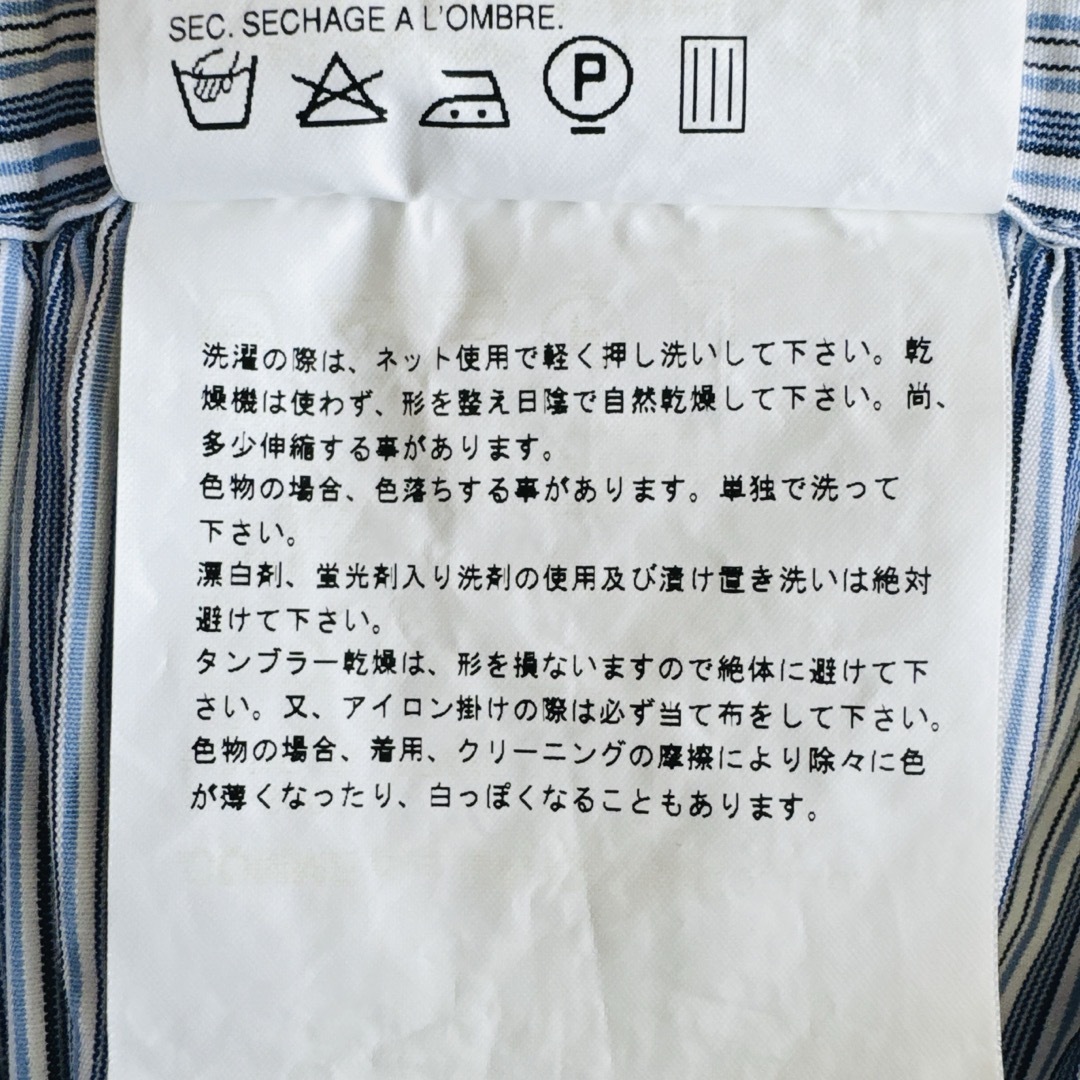 SEC. SECHAGE A L'OMBRE.
P
洗濯の際は、ネット使用で軽く押し洗いして下さい。乾
燥機は使わず、形を整え日陰で自然乾燥して下さい。尚、
多少伸縮する事があります。
色物の場合、色落ちする事があります。単独で洗って
下さい。
漂白剤、蛍光剤入り洗剤の使用及び漬け置き洗いは絶対
避けて下さい。
タンブラー乾燥は、形を損ないますので絶体に避けて下
さい。又、アイロン掛けの際は必ず当て布をして下さい。
色物の場合、着用、クリーニングの摩擦により除々に色
が薄くなったり、白っぽくなることもあります。